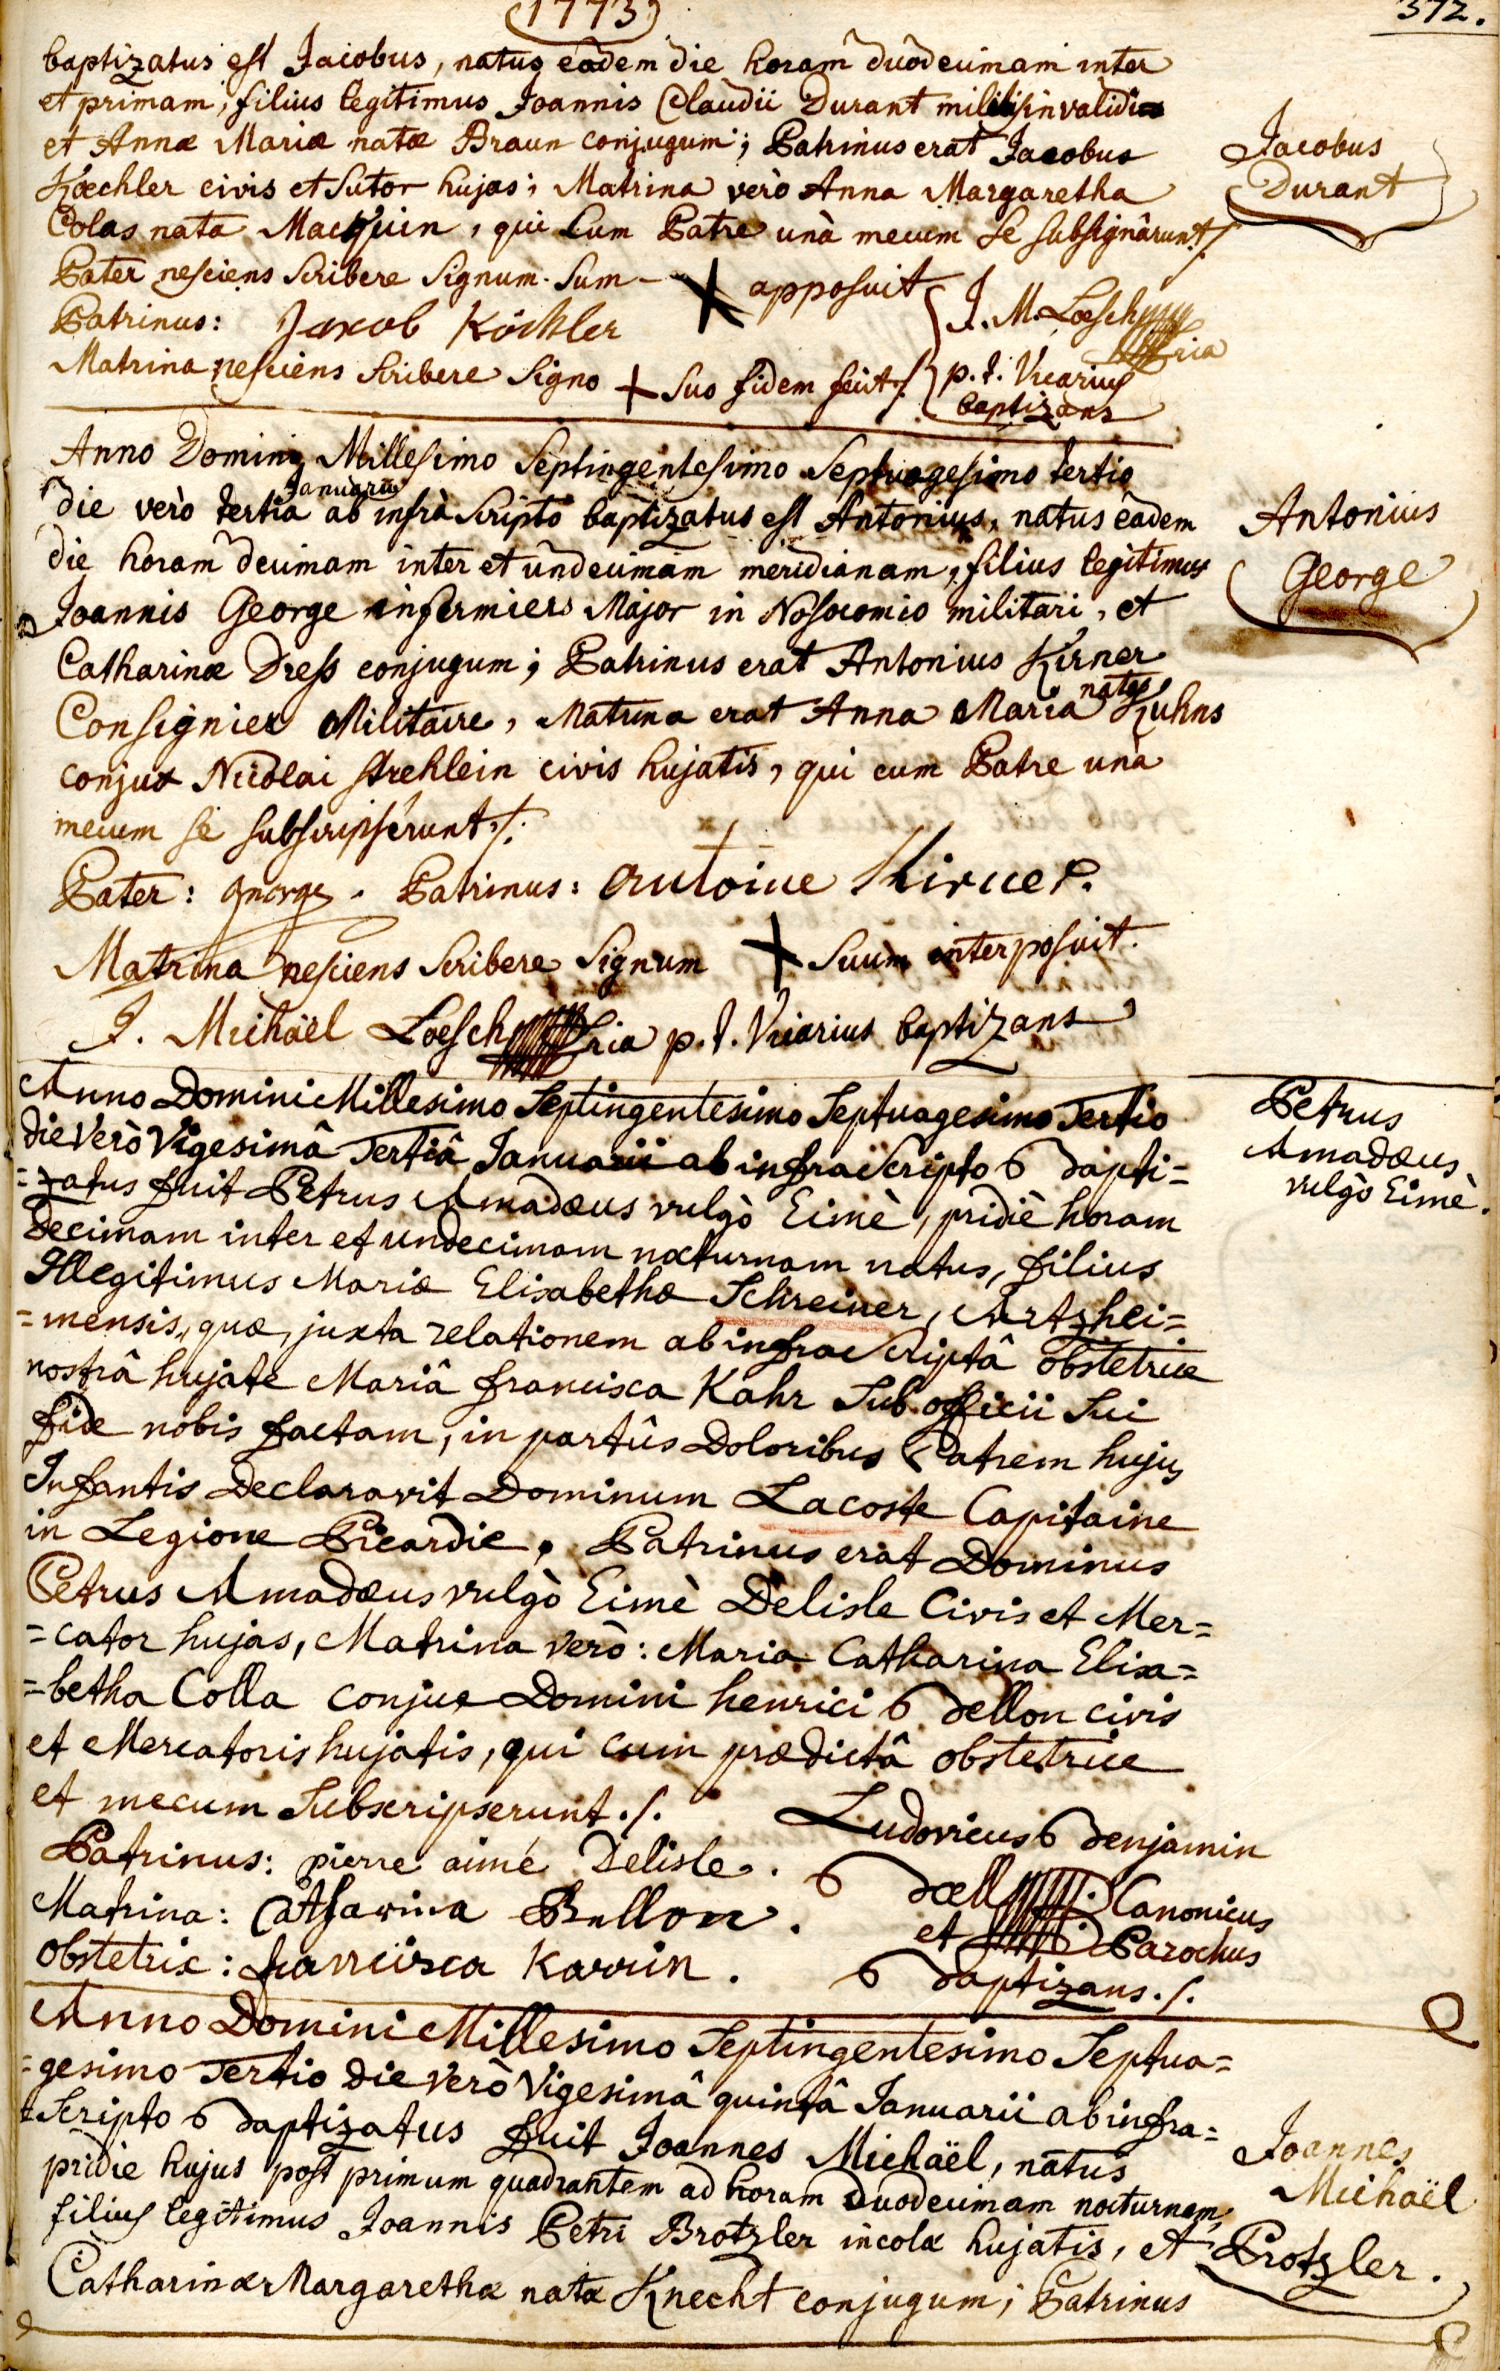 (1773)
372.
baptizatus est Jacobus, natus eâdem die horam duodecimam inter
et primam, filius legitimus Joannis Claudii Durant militis invalidi
et Annæ Mariæ natæ Braun conjugum; Patrinus erat Jacobus
Kœchler civis et sutor hujas; Matrina verò Anna Margaretha
Colas nata Macquin, qui cum Patre unà mecum se subsignârunt ./.
Jacobus
Durant
Pater nesciens scribere signum suum + apposuit
Patrinus: Jakob Köchler
Matrina nesciens scribere signo + suo fidem fecit ./.
J. M. Loesch
p. t. Vicarius
baptizans
Anno Domini Millesimo Septingentesimo Septuagesimo tertio
die verò tertia Januarii ab infrà scripto baptizatus est Antonius, natus eâdem
die horam decimam inter et undecimam meridianam, filius legitimus
Joannis George infirmiers Major in Nosocomio militari, et
Catharinæ Dress conjugum; Patrinus erat Antonius Kirner
Consignier Militaire, Matrina erat Anna Maria nata Kuhns
conjux Nicolai Strehlein civis hujatis, qui cum Patre unà
mecum se subscripserunt ./.
Antonius
George
Pater: george. Patrinus: antoine Kirner.
Matrina nesciens scribere signum + suum interposuit.
J. Michäel Loesch p. t. Vicarius baptizans
Anno Domini Millesimo Septingentesimo Septuagesimo Tertio
die verò Vigesimâ Tertiâ Januarii ab infra scripto Bapti=
=zatus fuit Petrus Amadæus vulgò Eimè, pridiè horam
Decimam inter et undecimam nocturnam natus, filius
Illegitimus Mariæ Elisabethæ Schreiner, Artzhei=
=mensis, quæ, juxta relationem ab infra scriptâ obstetrice
nostrâ hujate Mariâ francisca Kahr sub officii sui
fide nobis factam, in partûs Doloribus Patrem hujus
Infantis declaravit Dominum Lacoste Capitaine
in Legione Picardie. Patrinus erat Dominus
Petrus Amadæus vulgò Eimè Delisle Civis et Mer=
=cator hujas, Matrina verò: Maria Catharina Elisa=
=betha Colla conjux Domini henrici Bellon civis
et Mercatoris hujatis, qui cum prædictâ obstetrice
et mecum subscripserunt ./.
Petrus
Amadæus
vulgò Eimè.
Patrinus: pierre aimé Delisle.
Matrina: Catharina Bellon.
obstetrix: francisca Karrin.
Ludovicus Benjamin
Bœll Canonicus
et Parochus
Baptizans ./.
Anno Domini Millesimo Septingentesimo Septua=
=gesimo Tertio die verò Vigesimâ quintâ Januarii ab infra=
=scripto Baptizatus fuit Joannes Michäel, natus
pridie hujus post primum quadrantem ad horam duodecimam nocturnam,
filius legitimus Joannis Petri Brotzler incolæ hujatis, et
Catharinæ Margarethæ natæ Knecht conjugum; Patrinus
Joannes
Michäel
Protzler.